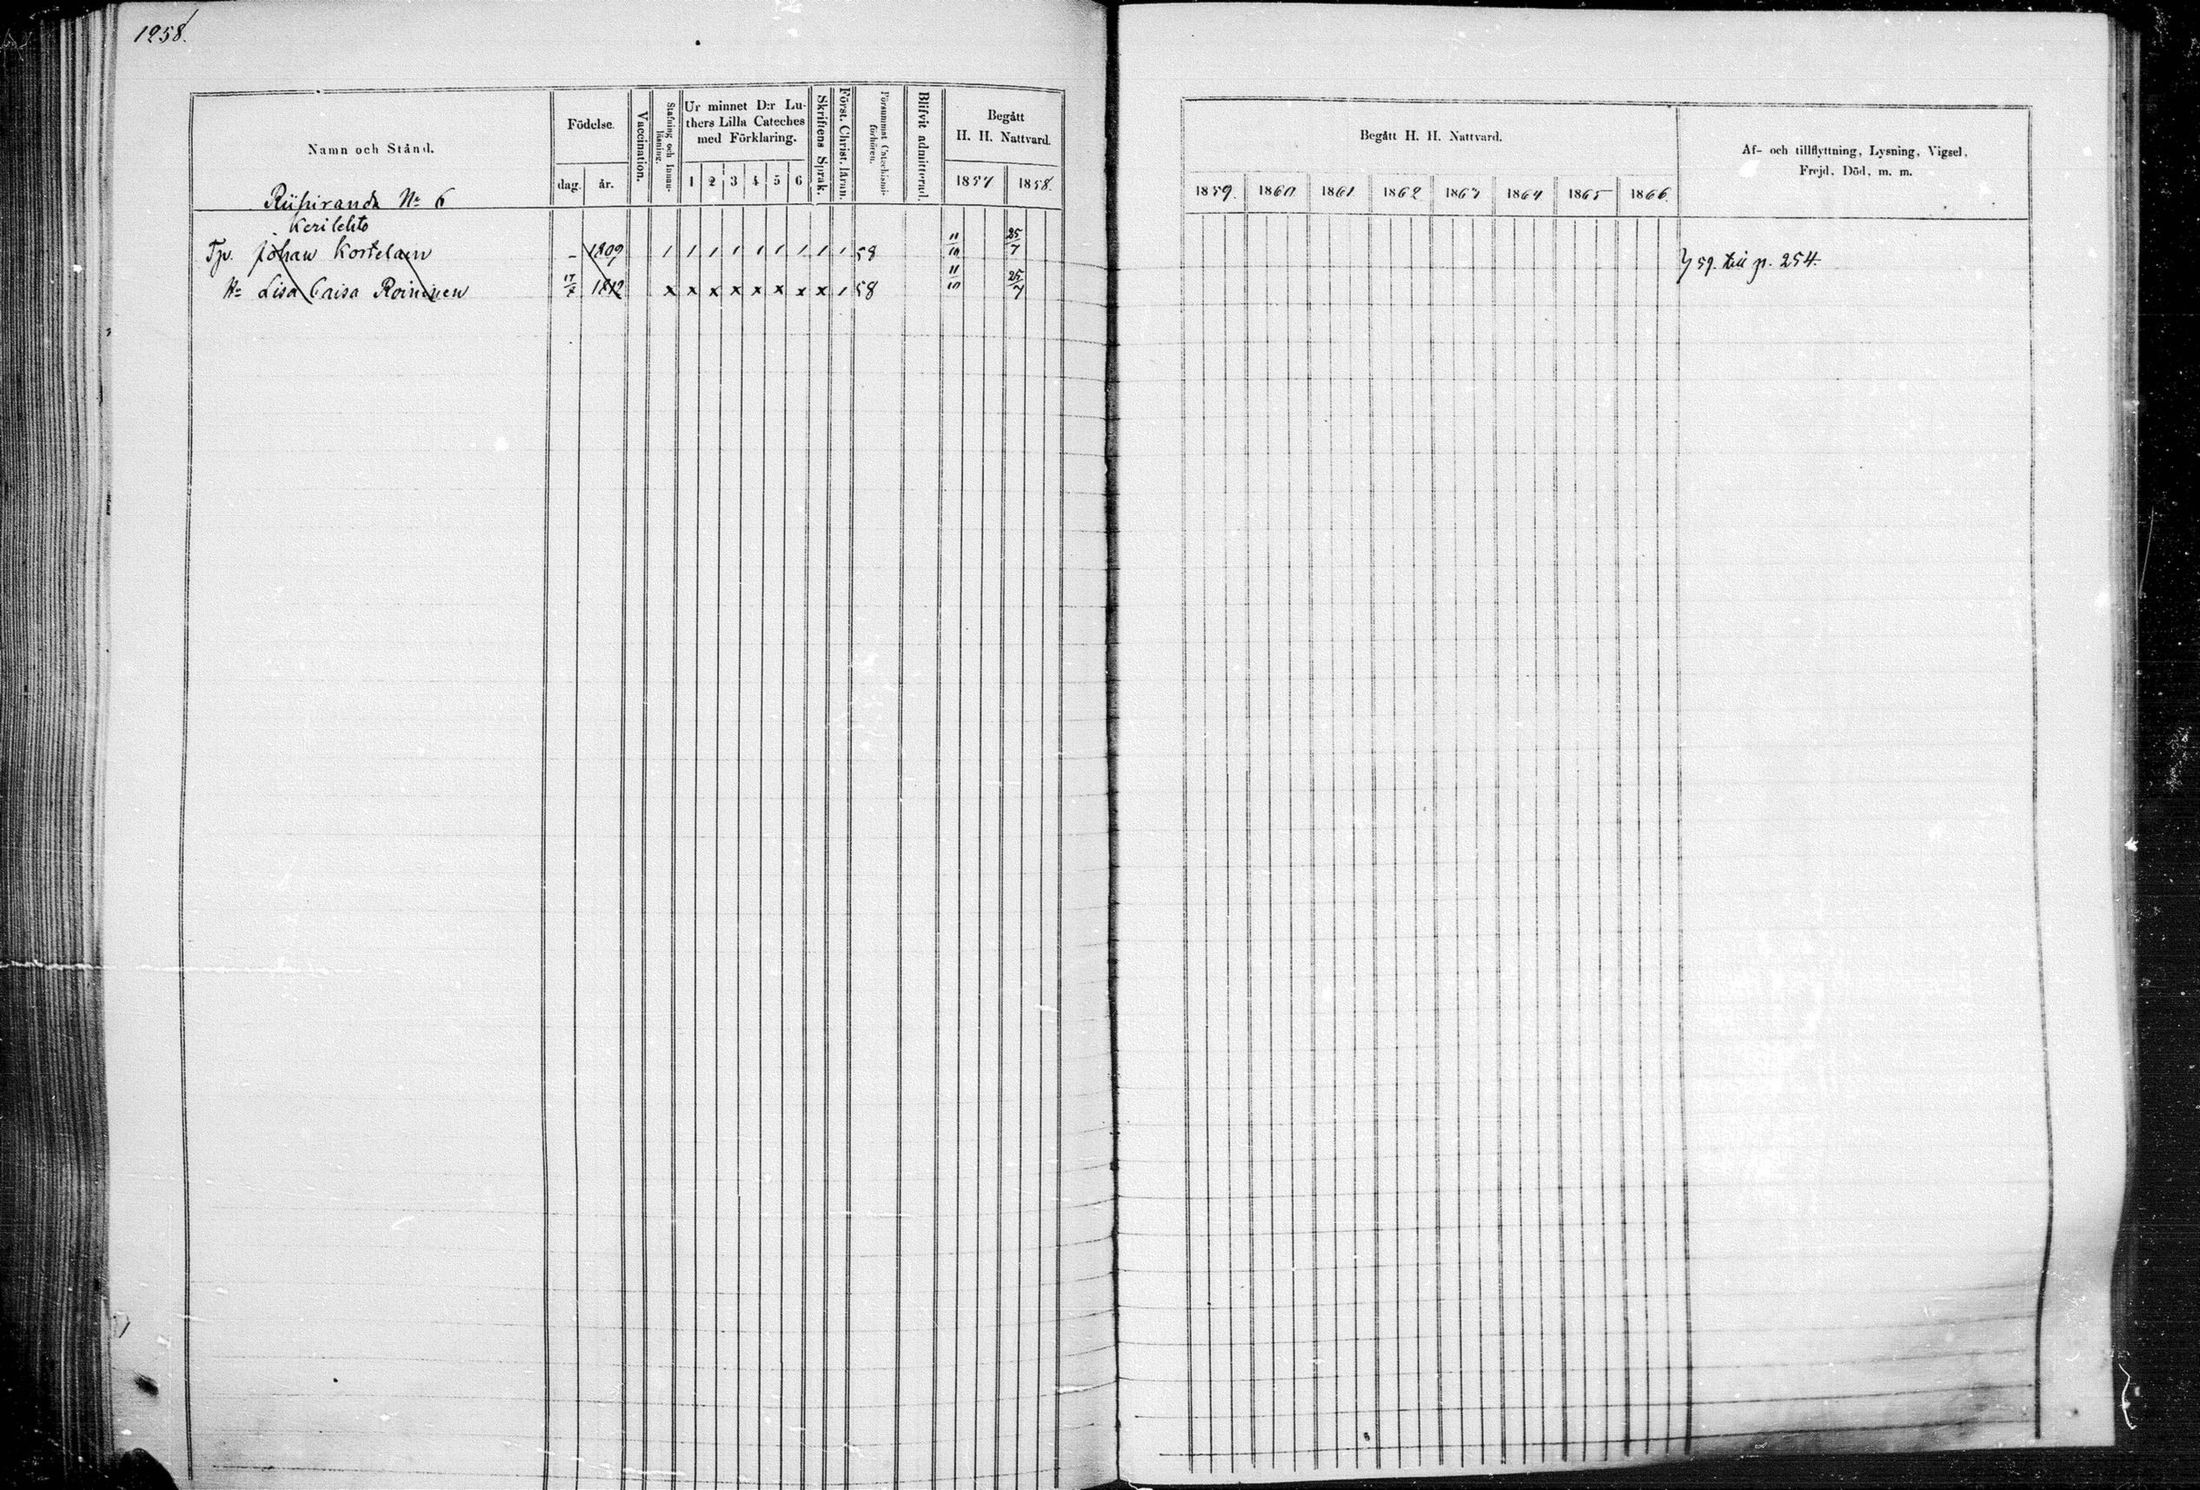 1258.
Namn och Stånd.
Födelse.
dag. år.
Vaccination.
Stafning och Innan-
läsning.
Ur minnet D:r Lu-
thers Lilla Cateches
med Förklaring.
1 2 3 4 5 6
Skriftens Språk.
Först. Christ. läran.
Försummat Catechismi-
förhören.
Blifvit admitterad.
Begått
H. H. Nattvard.
1857 1858.
Riihiranda No 6
Kerilehto
Tp. Johan Kortelain – 1809 1 1 1 1 1 1 1 1 1 58 11/10 25/7
Hu Lisa Caisa Roininen 17/7 1812 x x x x x x x x 1 58 11/10 25/7
Begått H. H. Nattvard.
1859. 1860 1861 1862 1863 1864 1865 1866.
Af- och tillflyttning, Lysning, Vigsel,
Frejd, Död, m. m.
59. till p. 254.